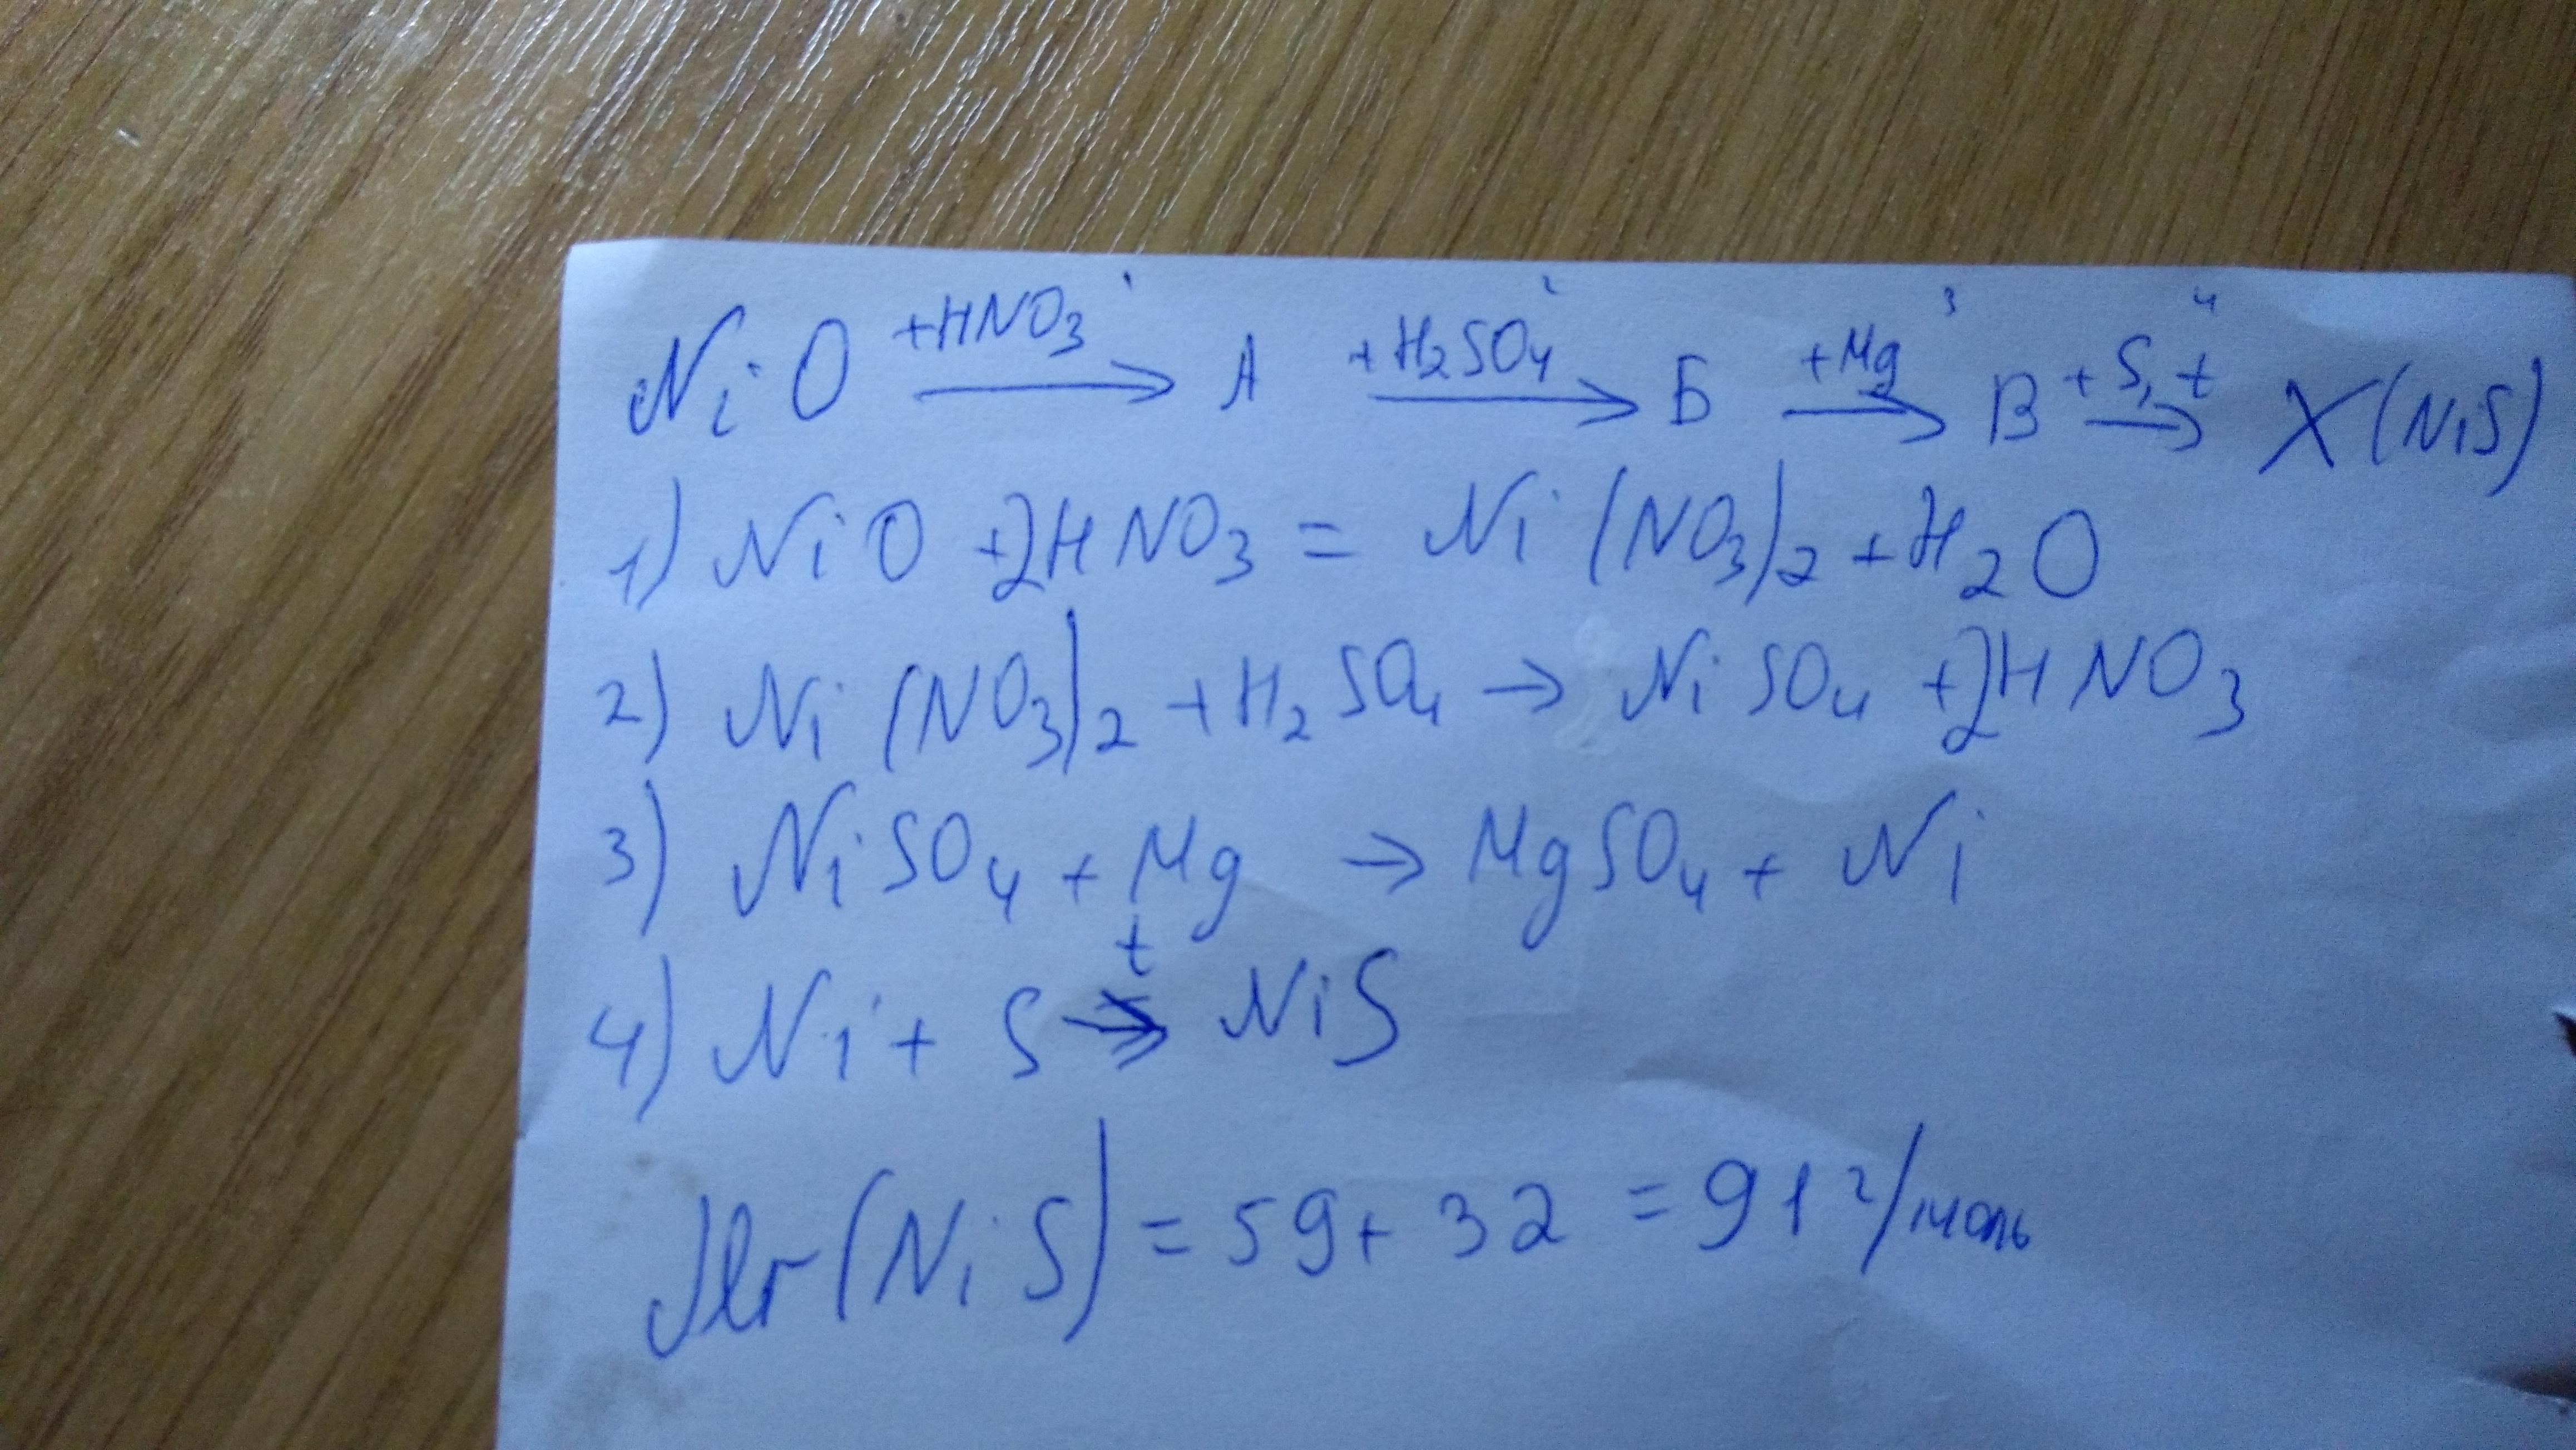 NiO +HNO₃ 1 → A +H₂SO₄ 2 → Б +Mg 3 → B +S, t 4 → X(NiS)
1) NiO + 2HNO₃ = Ni(NO₃)₂ + H₂O
2) Ni(NO₃)₂ + H₂SO₄ → NiSO₄ + 2HNO₃
3) NiSO₄ + Mg → MgSO₄ + Ni
4) Ni + S t→ NiS
Mr(NiS) = 59 + 32 = 91 г/моль